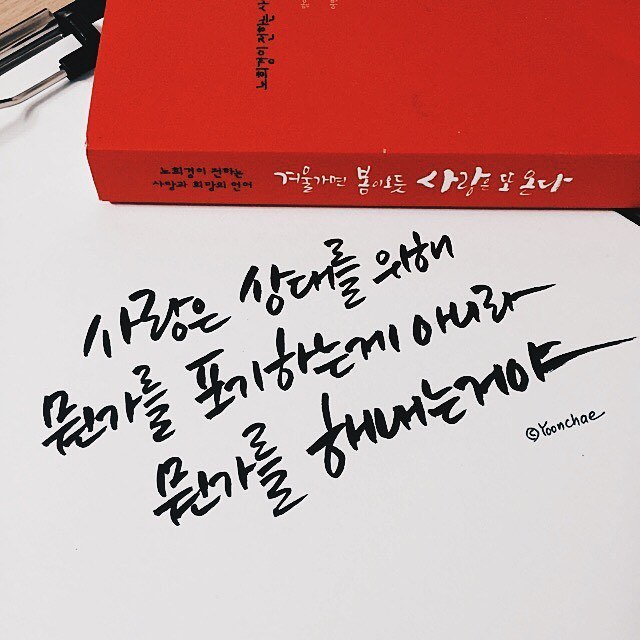 노희경이 전하는 사
노희경이 전하는
사랑과 희망의 언어
겨울가면 봄이오듯 사랑은 또 온다
사랑은 상대를 위해
뭔가를 포기하는게 아니라
뭔가를 해내는거야
©Yoonchae